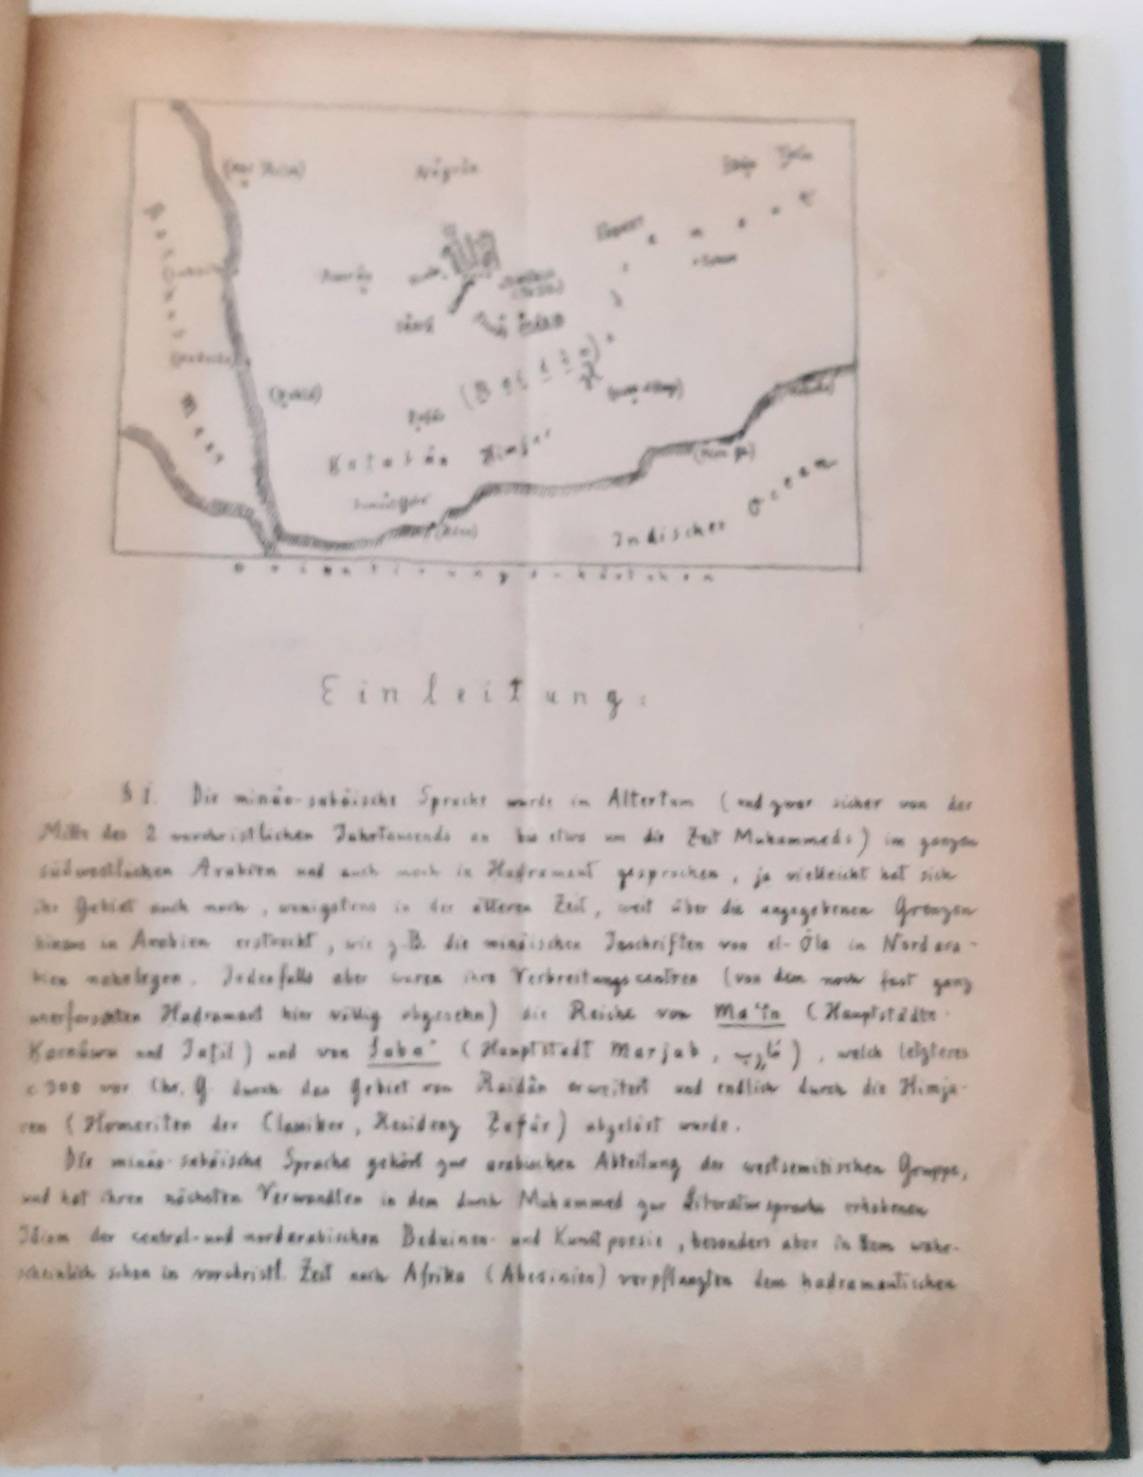 Nağrân
(Beihân)
Katabân Himjar
Rotes Meer
Indischer Ocean
Orientierungs-kärtchen
Einleitung:
§ 1. Die minäo-sabäische Sprache wurde im Altertum (und zwar sicher von der
Mitte des 2 vorchristlichen Jahrtausends an bis etwa um die Zeit Muhammeds) im ganzen
südwestlichen Arabien und auch noch in Hadramaut gesprochen, ja vielleicht hat sich
ihr Gebiet auch noch, wenigstens in der älteren Zeit, weit über die angegebenen Grenzen
hinaus in Arabien erstreckt, wie z.B. die minäischen Inschriften von el-Öla in Nordara-
bien nahelegen. Jedenfalls aber waren ihre Verbreitungscentren (von dem noch fast ganz
unerforschten Hadramaut hier völlig abgesehn) die Reiche von Ma'în (Hauptstädte
Karnâwu und Jatil) und von Saba' (Hauptstadt Marjab, ), welch letzteres
c 300 vor Chr. G. durch das Gebiet von Raidân erweitert und endlich durch die Himja-
ren (Homeriten der Classiker, Residenz Zafâr) abgelöst wurde.
Die minäo-sabäische Sprache gehört zur arabischen Abteilung der westsemitischen Gruppe,
und hat ihren nächsten Verwandten in dem durch Muhammed zur Literatursprache erhobenen
Idiom der central- und nordarabischen Beduinen- und Kunstpoesie, besonders aber in dem wahr-
scheinlich schon in vorchristl. Zeit nach Afrika (Abesinien) verpflanzten dem hadramautischen